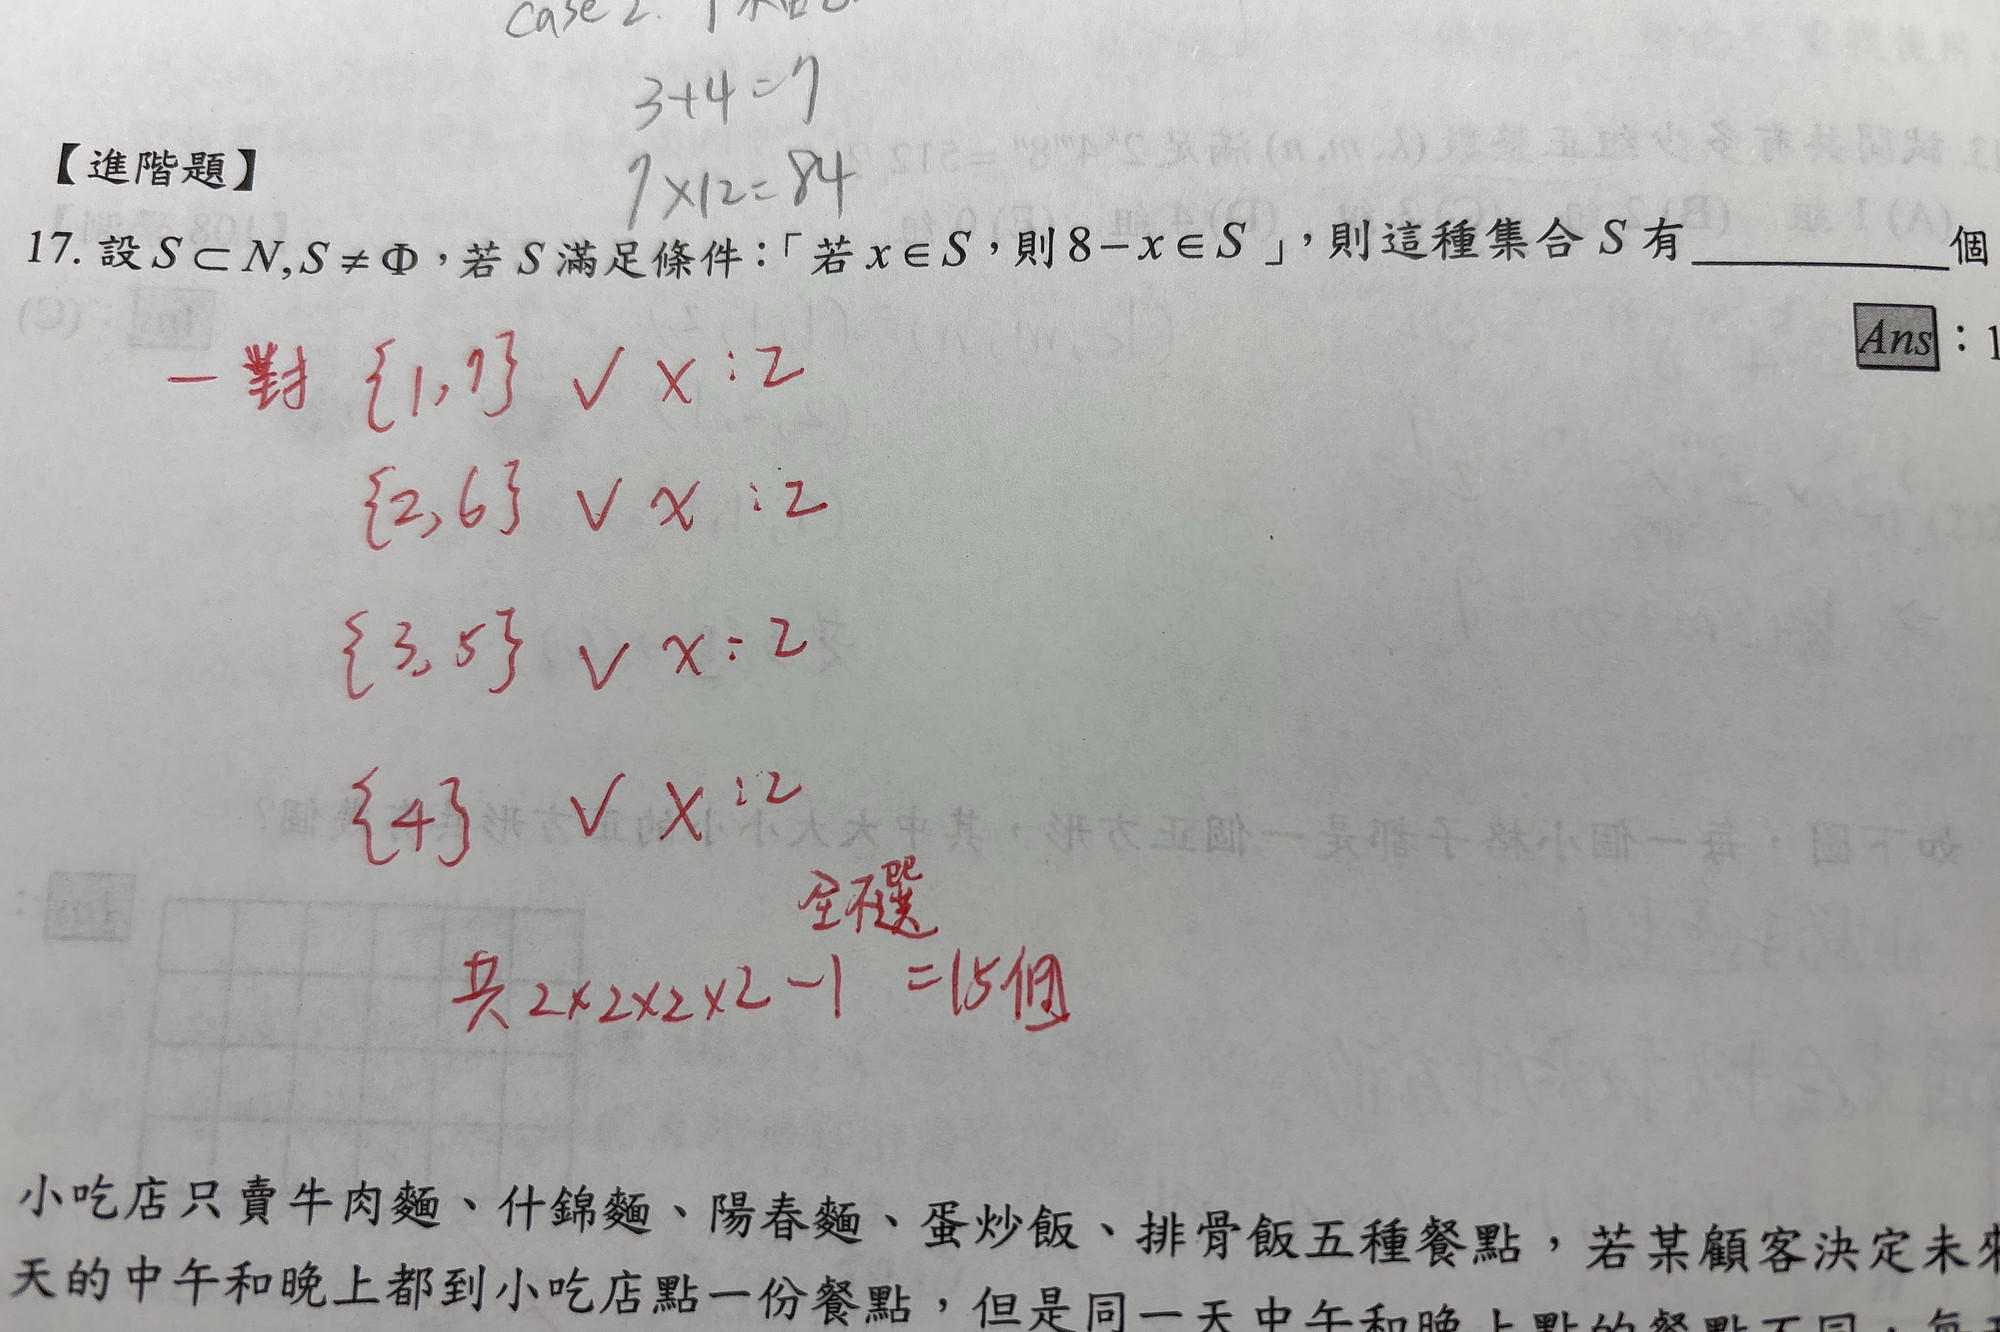 case 2.
3+4=7
7×12=84
【進階題】
17. 設 S ⊂ N, S ≠ Φ，若 S 滿足條件：「若 x ∈ S，則 8 − x ∈ S 」，則這種集合 S 有__________個
Ans：1
一對 {1,7} ✓ × : 2
{2,6} ✓ × : 2
{3,5} ✓ × : 2
{4} ✓ × : 2
全不選
共 2×2×2×2 −1 =15個
小吃店只賣牛肉麵、什錦麵、陽春麵、蛋炒飯、排骨飯五種餐點，若某顧客決定未來
天的中午和晚上都到小吃店點一份餐點，但是同一天中午和晚上點的餐點不同，每天